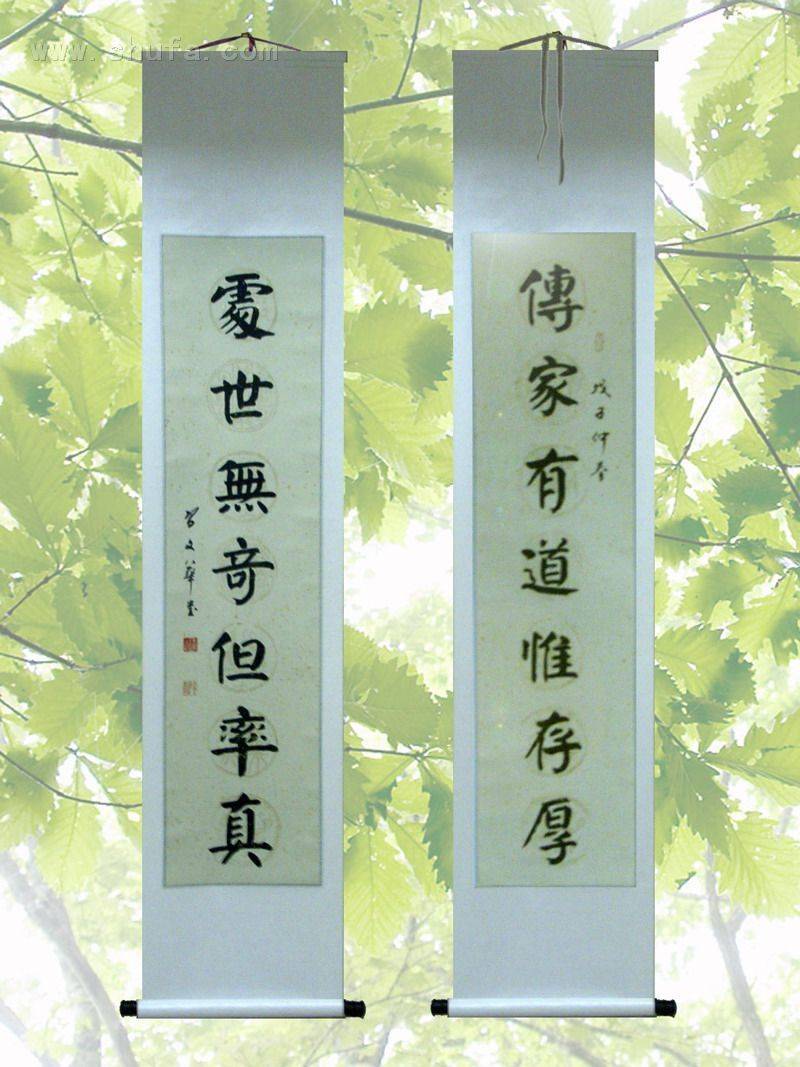 www.shufa.com
傳家有道惟存厚
戊子仲春
處世無奇但率真